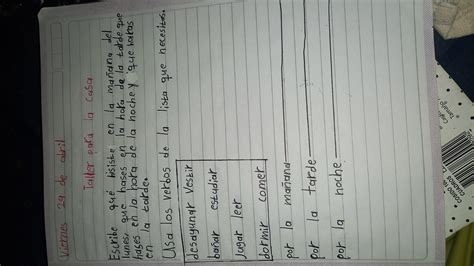 Viernes 29 de abril
Taller para la casa
Escribe que hisiste en la mañana del
lunes, que hases en la hora de la tarde que
hases en la hora de la noche y que haras
en la tarde.
Usa los verbos de la lista que necesites.
desayunar Vestir
bañar estudiar
Jugar leer
dormir comer
por la mañana
por la tarde
por la noche